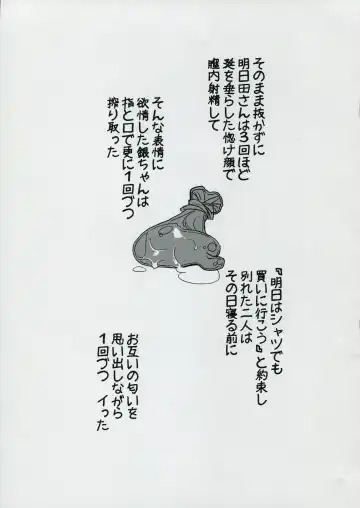 そのまま抜かずに
明日田さんは3回ほど
涎を垂らした惚け顔で
膣内射精して
そんな表情に
欲情した銀ちゃんは
指と口で更に1回づつ
搾り取った
『明日はシャツでも
買いに行こう』と約束し
別れた二人は
その日寝る前に
お互いの匂いを
思い出しながら
1回づつ イった